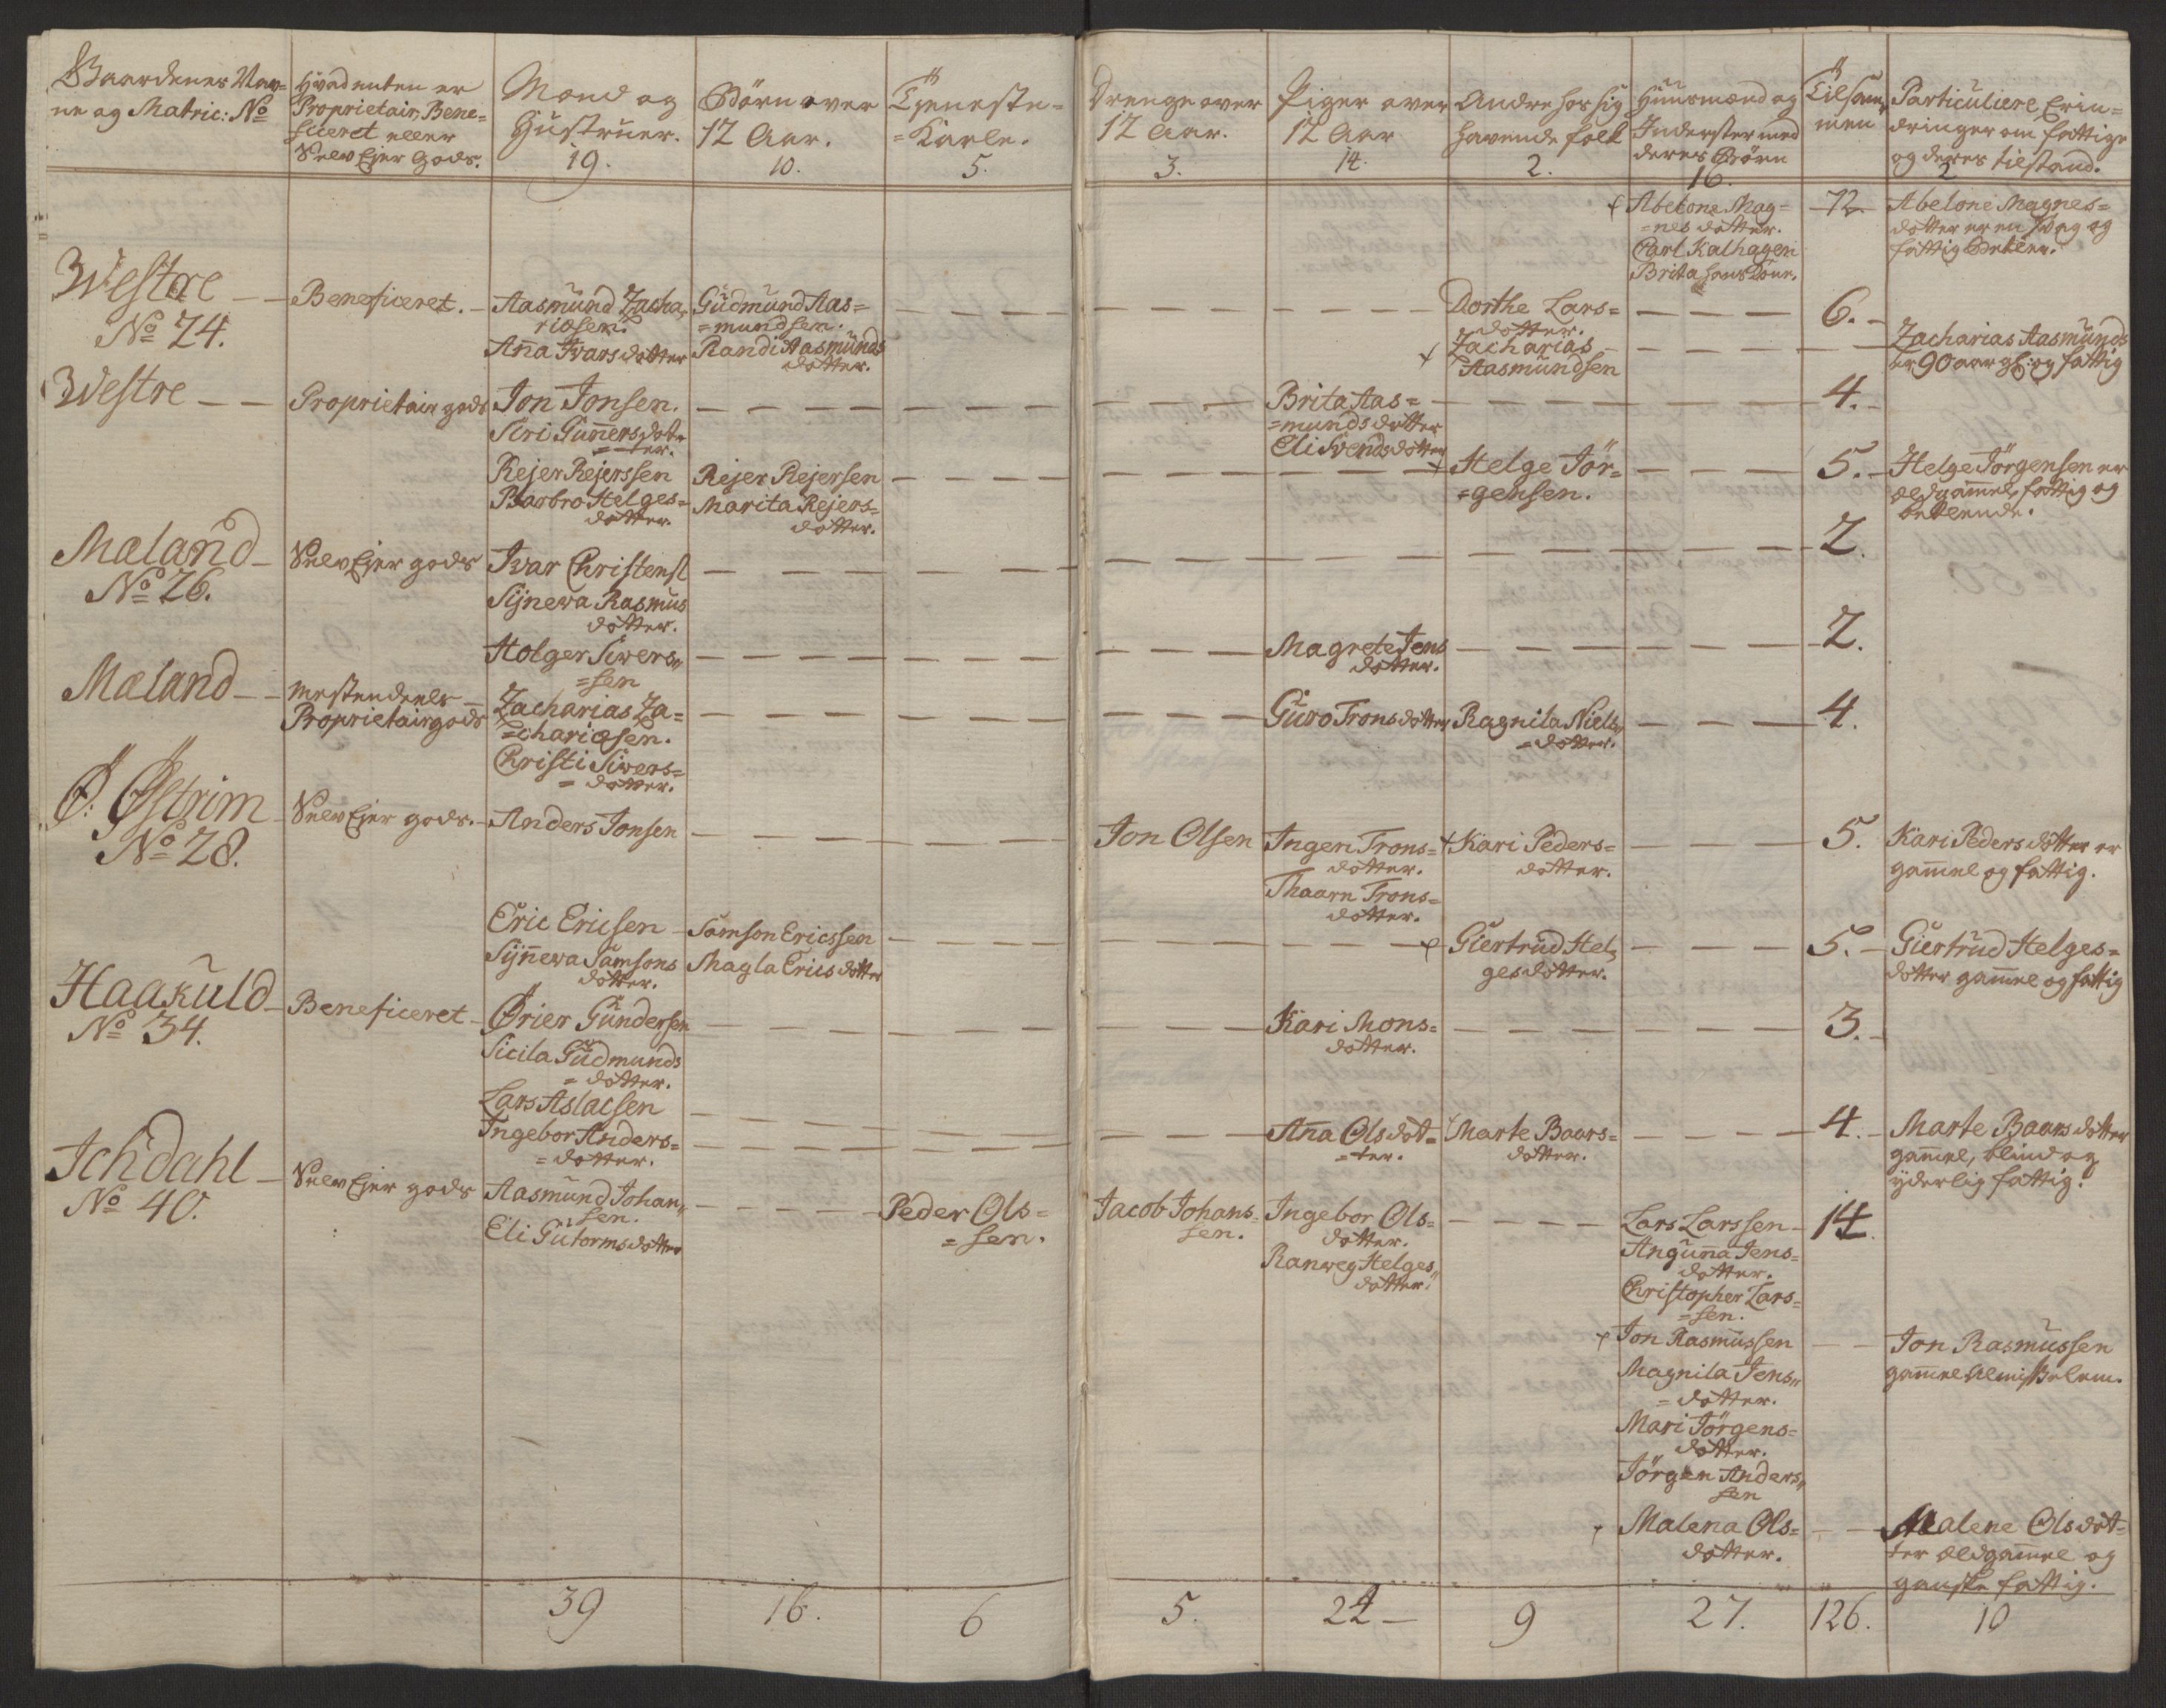 Gaardenes Nav=
ne og Matric: No
Hvad enten er
Proprietair, Bene=
ficeret eller
Selv Ejer Gods.
Mænd og
Hustruer.
19.
Börn over
12 Aar.
10.
Tjeneste=
=Karle.
5.
Drenge over
12 Aar.
3.
Piger over
12 Aar
14.
Andre hos sig
havende folk
2.
Huusmænd og
Inderster med
deres Börn
16.
Tilsam,
men
Particuliere Erin=
dringer om fattige
og deres tilstand.
2
Abelone Mag=
=nes dotter.
Carl Kalhagen
Brita hans Kone.
72
Abelone Magnes=
dotter er en svag og
fattig Betler.
Westre
No 24.
Beneficeret.
Aasmund Zacha,
riæsen.
Anna Ivarsdotter
Gudmund Aas=
=mundsen.
Randi Aasmunds
dotter.
Dorthe Lars=
dotter.
Zacharias
Aasmundsen
6.
Zacharias Aasmunds
er 90 aar gl: og fattig
Westre
Proprietair gods
Jon Jonsen.
Siri Gunnersdot=
=ter.
Brita Aas=
=munds dotter
Eli Svendsdotter
4.
Rejer Rejerssen
Barbro Helges=
dotter.
Rejer Rejersen
Marita Rejers=
dotter.
Helge Jör=
=gensen.
5.
Helge Jörgensen er
ældgammel, fattig og
betlende.
Mæland
No 26.
Selv Ejer gods
Ivar Christens
Synewa Rasmus
dotter.
2.
Holger Siwers,,
=sen
Magrete Jens
dotter.
2.
Mæland
mestendeels
Proprietair gods
Zacharias Za=
=chariæsen.
Christi Siwers=
=dotter.
Guro Tronsdotter
Ragnila Niels,,
=dotter.
4.
Ø: Østrim
No 28.
Selv Ejer gods.
Anders Jonsen
Jon Olsen
Ingeri Trons=
dotter.
Thaarn Trons=
dotter.
Kari Peders=
dotter.
5.
Kari Pedersdotter er
gammel og fattig.
Eric Ericsen
Synnewa Samsons
dotter.
Samson Ericssen
Magla Erics dotter
Giertrud Hel,
ges dotter.
5.
Giertrud Helges=
dotter gammel og fattig
Haakuld
No 34.
Beneficeret
Ørier Gundersen
Sicila Gudmunds
=dotter.
Kari Mons=
dotter.
3.
Lars Aslacsen
Ingebor Anders=
=dotter.
Anna Ols dot=
=ter.
Marte Baars=
dotter.
4.
Marte Baars dotter
gammel, blind og
yderlig fattig.
Ichdahl
No 40.
Selv Ejer gods
Aasmund Johan,,
sen.
Eli Gutormsdotter
Peder Ols=
=sen.
Jacob Johans=
sen.
Ingebor Ols=
dotter.
Ranweg Helges,,
dotter.
Lars Larssen
Angunna Jens=
dotter.
Christopher Lars=
=sen.
14.
Jon Rasmussen
Magnila Jens,,
=dotter.
Mari Jörgens=
dotter.
Jörgen Anders,,
sen
Jon Rasmussen
gammel Almisselem.
Malena Ols=
dotter.
Malene Olsdot=
ter ældgammel og
ganske fattig.
39
16.
6
5.
24
9
27.
126.
10